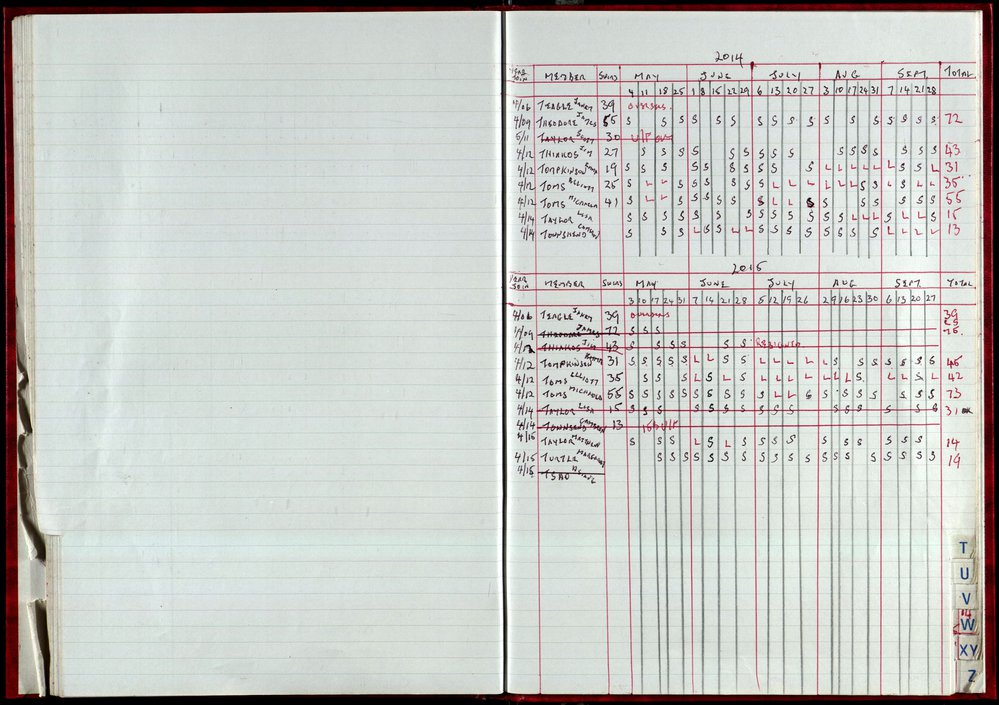 2014
YEAR JOIN MEMBER SWIMS MAY JUNE JULY AUG SEPT. TOTAL
4 11 18 25 1 8 15 22 29 6 13 20 27 3 10 17 24 31 7 14 21 28
4/06 TEAGLE JANET 39 OVERSEAS.
4/09 THEODORE JAMES 55 S S S S S S S S S S S S S S S S S 72
5/11 TAYLOR SCOTT 30
4/12 THIAKOS JIM 27 S S S S S S S S S S S S S S S S 43
4/12 TOMPKINSON 19 S S S S S S S S S S S L L L L L L S S L 31
4/12 TOMS ELLIOTT 25 S L L S S S S S S L L L L L L S S L S L L 35
4/12 TOMS MICHAELA 41 S L L S S S S S S L L S S S S S S S 55
4/14 TAYLOR LISA S S S S S S S S S S S S S S S L L L S L L S 15
4/14 TOWNSHEND S S S L S S L L S S S S S L S L S L S L L 13
2015
YEAR JOIN MEMBER SWIMS MAY JUNE JULY AUG SEPT. TOTAL
3 10 17 24 31 7 14 21 28 5 12 19 26 2 9 16 23 30 6 13 20 27
4/06 TEAGLE JANET 39 OVERSEAS 39
4/09 THEODORE JAMES 72 S S S
THIAKOS JIM 43 S S S S S S RESIGNED
4/12 TOMPKINSON 31 S S S S S L L S S L L L L L S S S S S S S
4/12 TOMS ELLIOTT 35 S S S L S L S L L L L L L L S L L S L 42
4/12 TOMS MICHAELA 55 S S S S S S S S S S L L S S S S S S S S 73
4/14 TAYLOR LISA 15 S S S S S S S S S S S S S S S S 31
4/14 TOWNSEND CAMERON 13
4/15 TAYLOR MATTHEW S S S L S L S S S S S S S S S S 14
4/15 TURTLE MARGARET S S S S S S S S S S S S S S S S S S S 19
4/15 TSAO
T
U
V
W
XY
Z